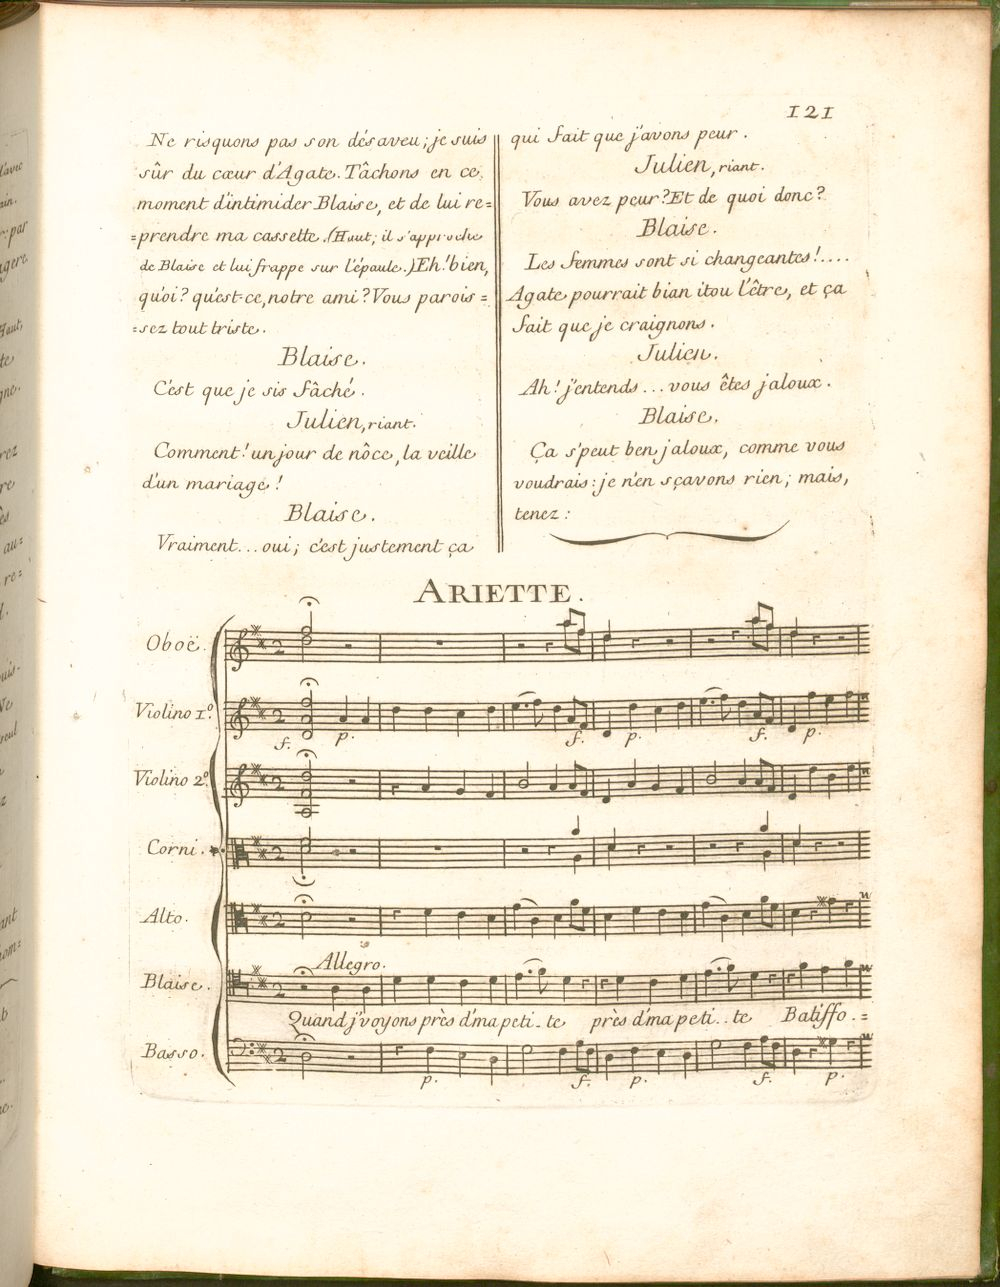 121
Ne risquons pas son désaveu; je suis
sûr du cœur d'Agate. Tâchons en ce
moment d'intimider Blaise, et de lui re=
=prendre ma cassette. (Haut; il s'approche
de Blaise et lui frappe sur l'épaule.) Eh! bien,
quoi? qu'est-ce, notre ami? Vous parois=
=sez tout triste.
Blaise.
C'est que je sis fâché.
Julien, riant.
Comment! un jour de nôce, la veille
d'un mariage!
Blaise.
Vraiment... oui; c'est justement ça
qui fait que j'avons peur.
Julien, riant.
Vous avez peur? Et de quoi donc?
Blaise.
Les femmes sont si changeantes!....
Agate pourrait bian itou l'être, et ça
fait que je craignons.
Julien.
Ah! j'entends... vous êtes jaloux.
Blaise.
Ça s'peut ben jaloux, comme vous
voudrais: je n'en sçavons rien; mais,
tenez:
ARIETTE.
Oboë.
Violino 1º.
f. p. f. p. f. p.
Violino 2º.
Corni.
Alto.
Allegro.
Blaise.
Quand j'voyons près d'ma peti-te près d'ma peti..te Batiffo.=
Basso.
p. f. p. f. p.